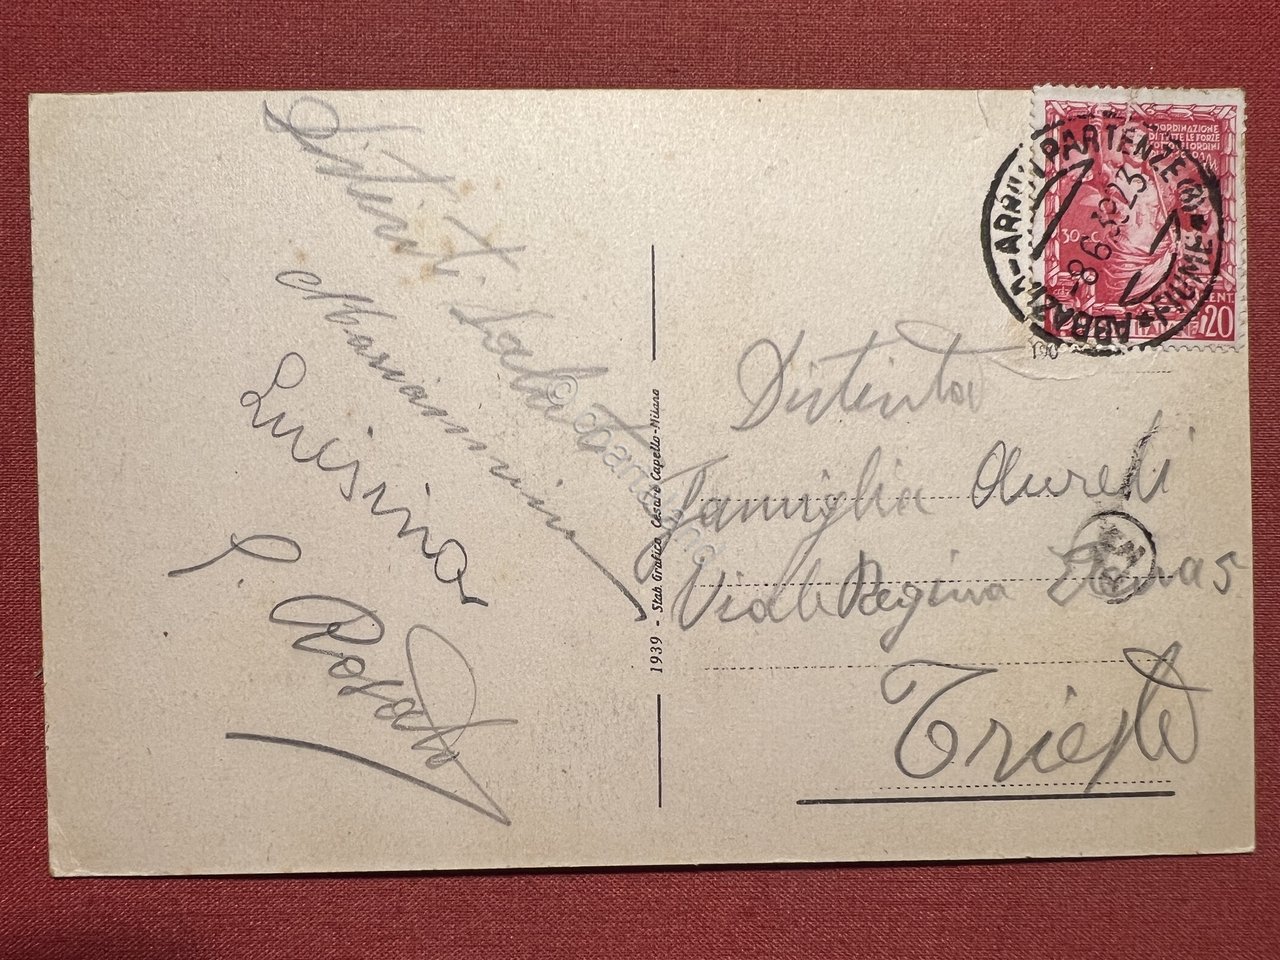 Distinti Saluti
Mariannina
Luisina
G. Rosato
1939 - Stab. Grafico Cesare Capello - Milano
Distinta
Famiglia Auredi
Viale Regina Elena 5
Trieste
COORDINAZIONE
DI TUTTE LE FORZE
ORDINI
30 c.
CENT. 20
ARRIVI PARTENZE
* FIUME *
8 6 39 23